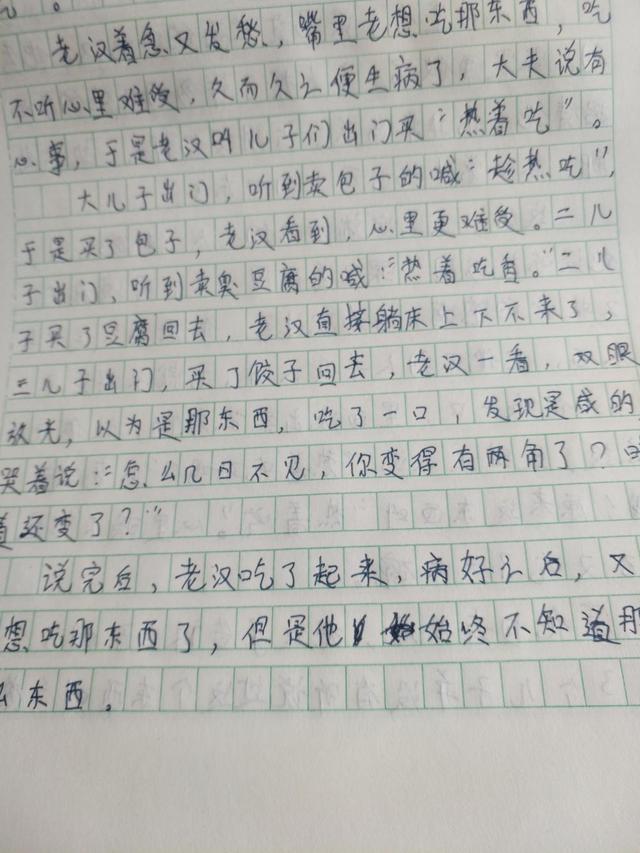 老汉着急又发愁，嘴里老想吃那东西，吃
不听心里难受，久而久之便生病了，大夫说有
心事，于是老汉叫儿子们出门买"热着吃"。
大儿子出门，听到卖包子的喊："趁热吃"，
于是买了包子，老汉看到，心里更难受。二儿
子出门，听到卖臭豆腐的喊："热着吃香。"二儿
子买了豆腐回去，老汉直接躺床上下不来了，
三儿子出门，买了饺子回去，老汉一看，双眼
放光，以为是那东西，吃了一口，发现是咸的，
哭着说："怎么几日不见，你变得有两角了？
还变了？"
说完后，老汉吃了起来，病好之后，又
想吃那东西了，但是他始终不知道那
么东西。